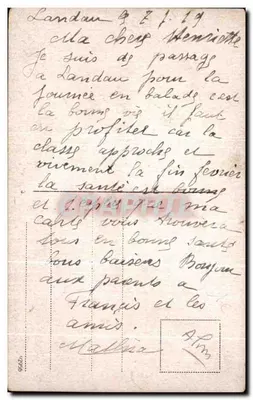 Landau 9 7 1 19
Ma chere Henriette
Je suis de passage
a Landau pour la
journee en balade c'est
la bonne vie il faut
en profiter car la
classe approche et
vivement la fin fevrier
la santé est bonne
et j'espere que ma
carte vous trouvera
tous en bonne santé
vous baisers Bonjour
aux parents a
François et les
amis.